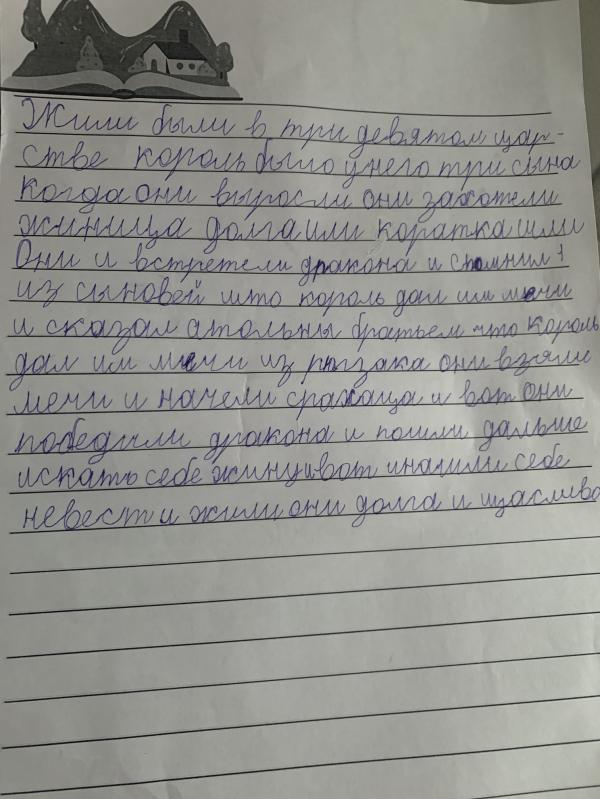 Жили были в три девятом цар-
стве король было у него три сына
когда они выросли они захотели
жиница долга или коратка шли
Они и встретели дракона и спомнил 1
из сыновей што король дал им мечи
и сказал атольны братьем что король
дал им мечи из рызака они взяли
мечи и начели сражаца и вот они
победили дракона и пошли дальше
искать себе жинщивот инашли себе
невест и жили они долга и щасливо